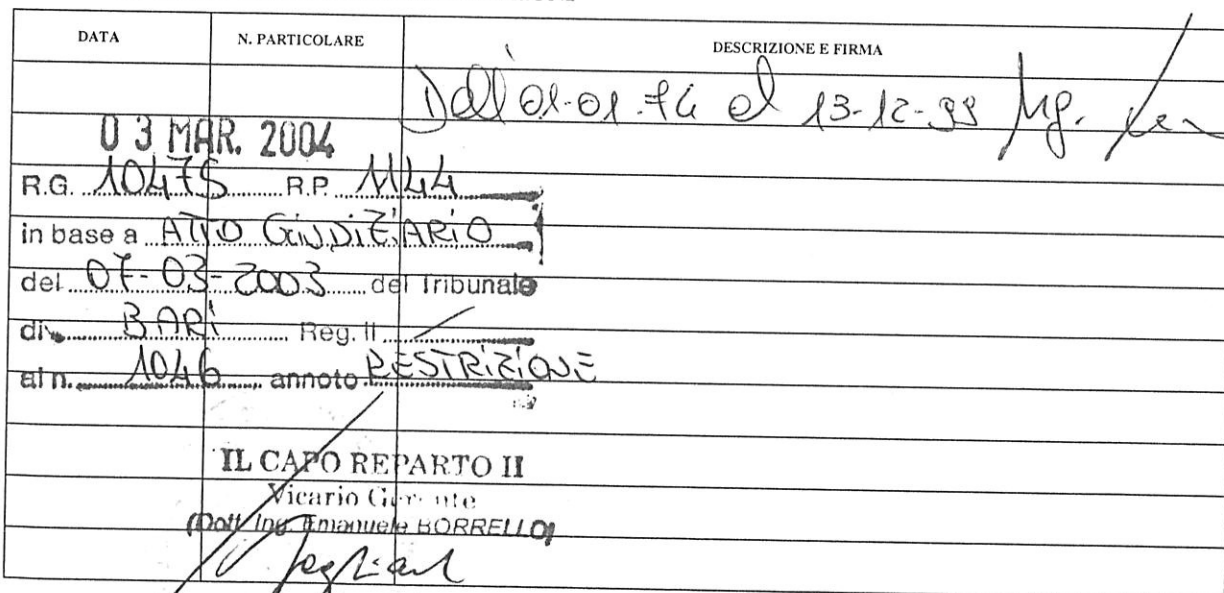 DATA N. PARTICOLARE DESCRIZIONE E FIRMA
Dall'01-01-74 al 13-12-99
03 MAR. 2004
R.G. 10475 R.P. 1144
in base a ATTO GIUDIZIARIO
del 07-03-2003 del Tribunale
di BARI Reg. II
al n. 1046 annoto RESTRIZIONE
IL CAPO REPARTO II
Vicario Gerente
(Dott. Ing. Emanuele BORRELLO)